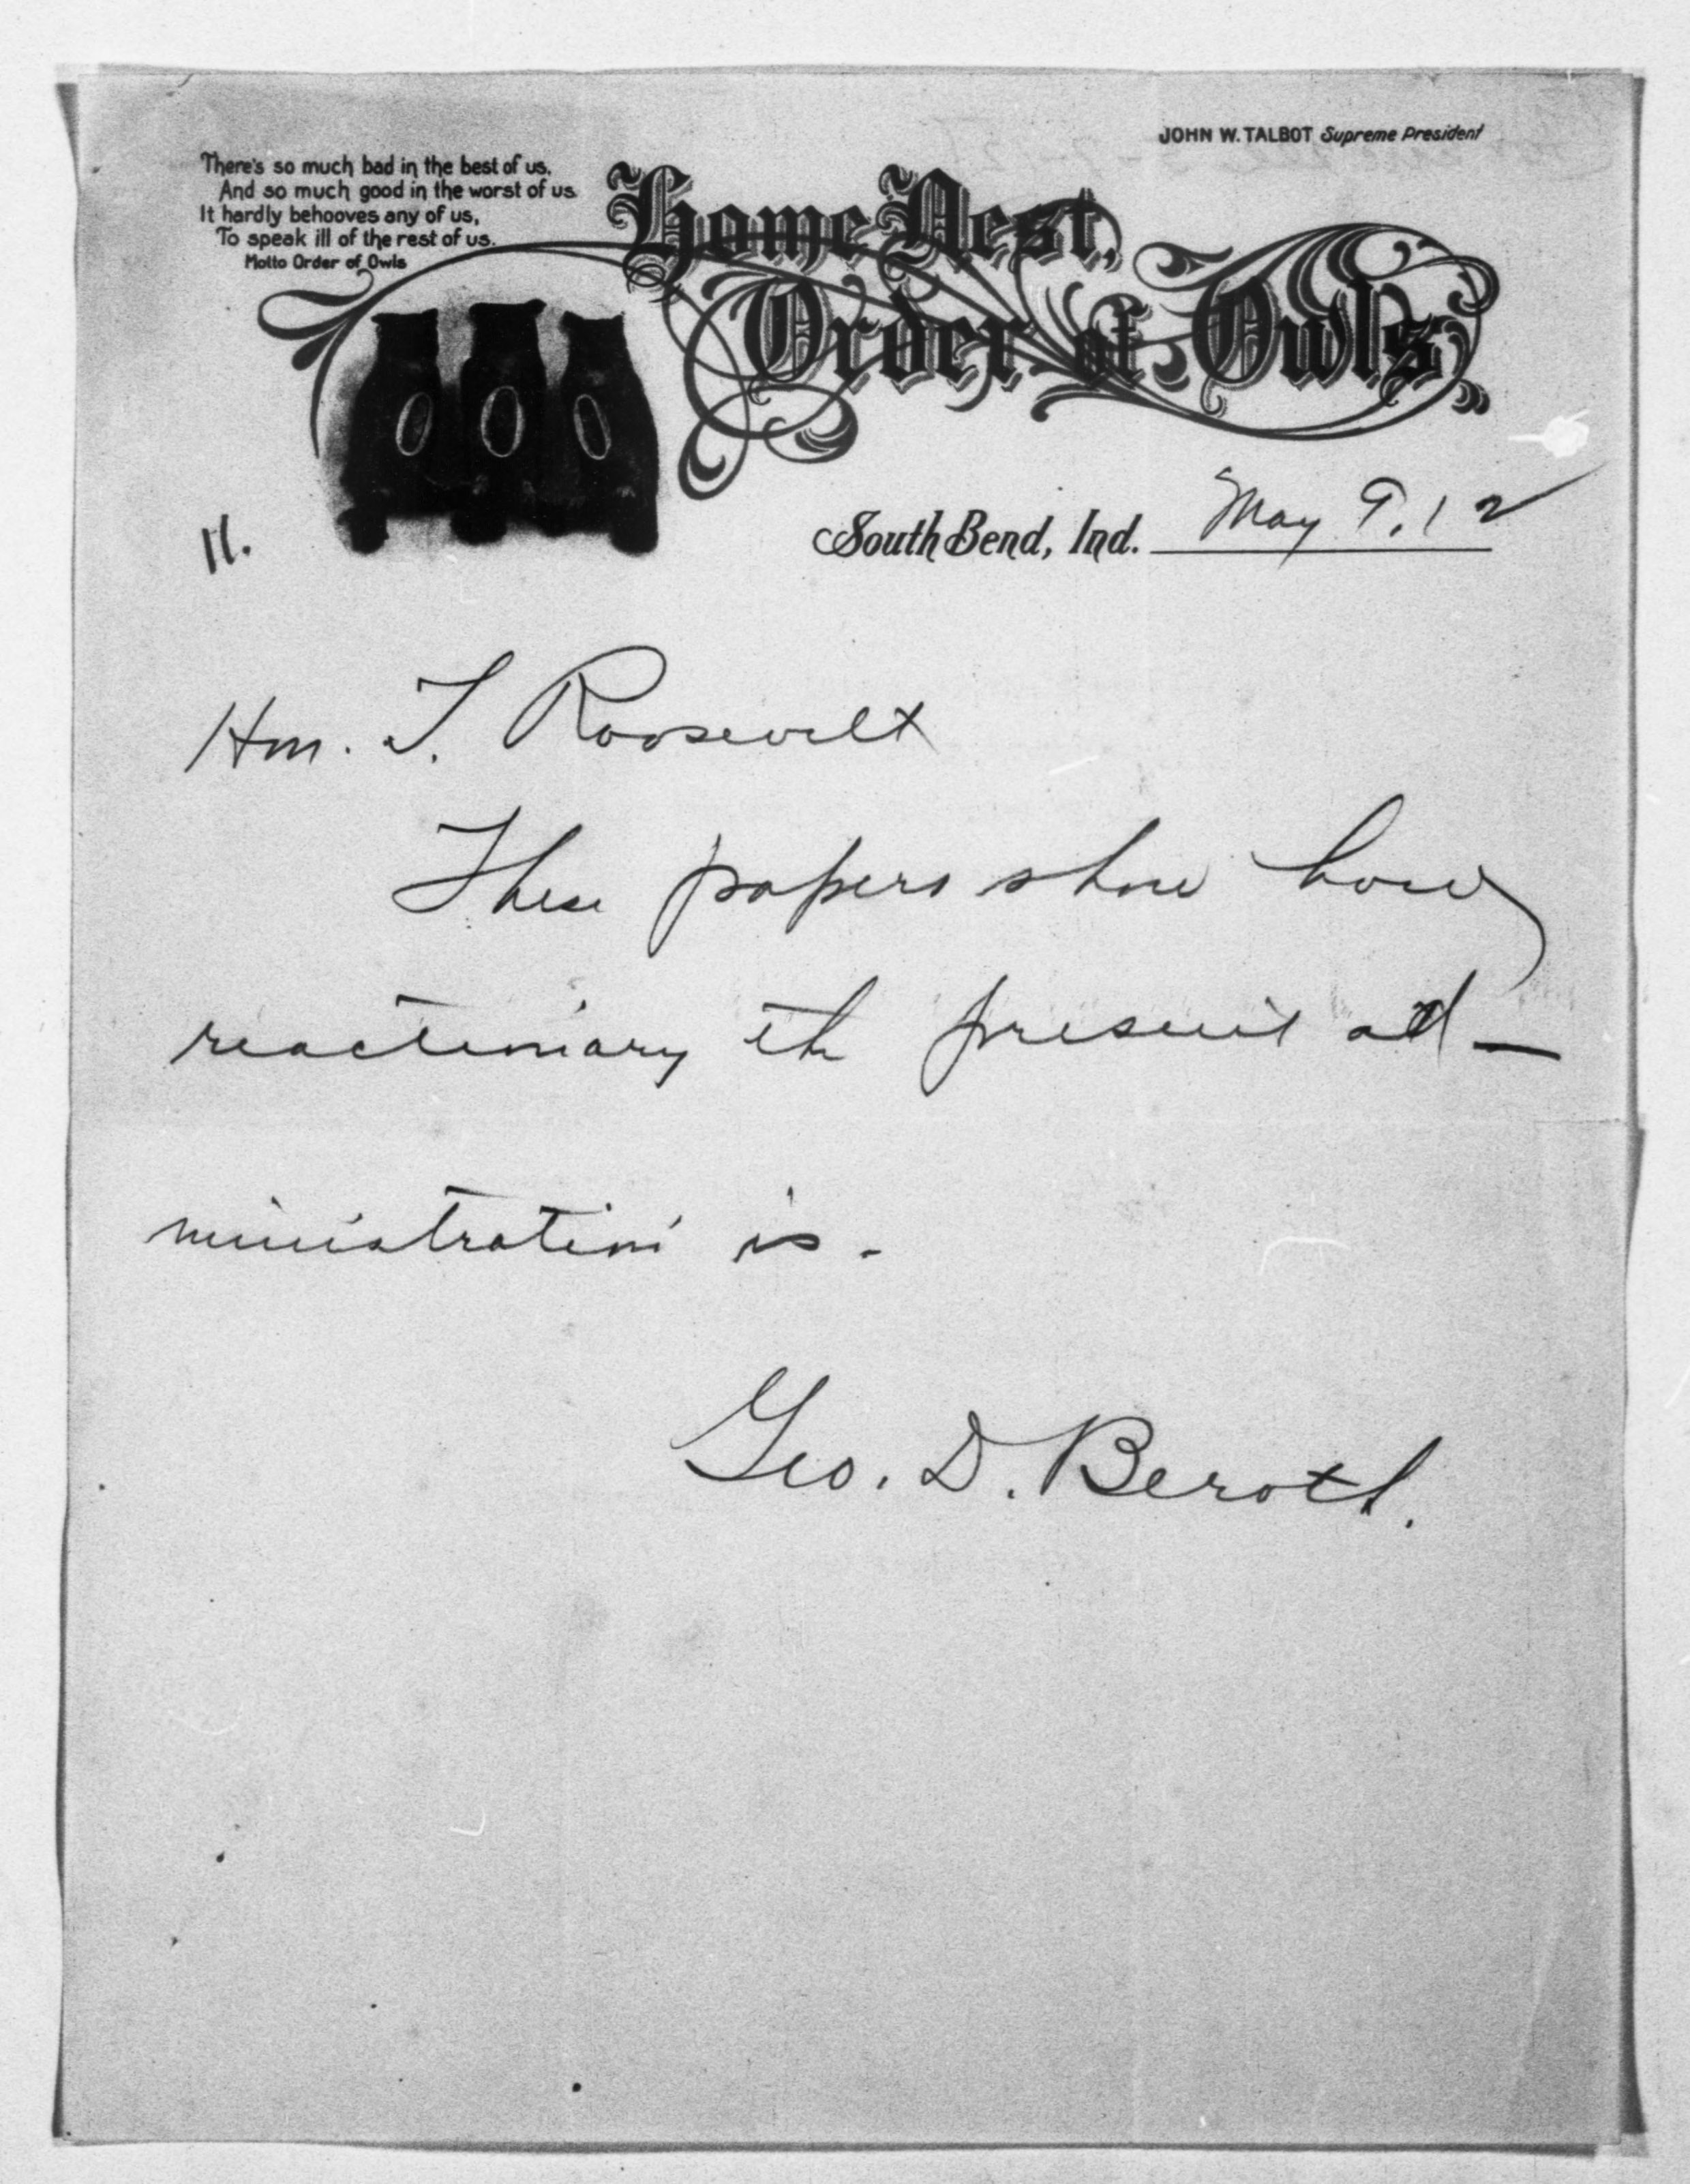 JOHN W. TALBOT Supreme President
There's so much bad in the best of us,
And so much good in the worst of us
It hardly behooves any of us,
To speak ill of the rest of us.
Motto Order of Owls
Home Nest,
Order of Owls
South Bend, Ind. May 9. 12
Hon. T. Roosevelt
These papers show how
reactionary the present ad-
ministration is.
Geo. D. Beroth.